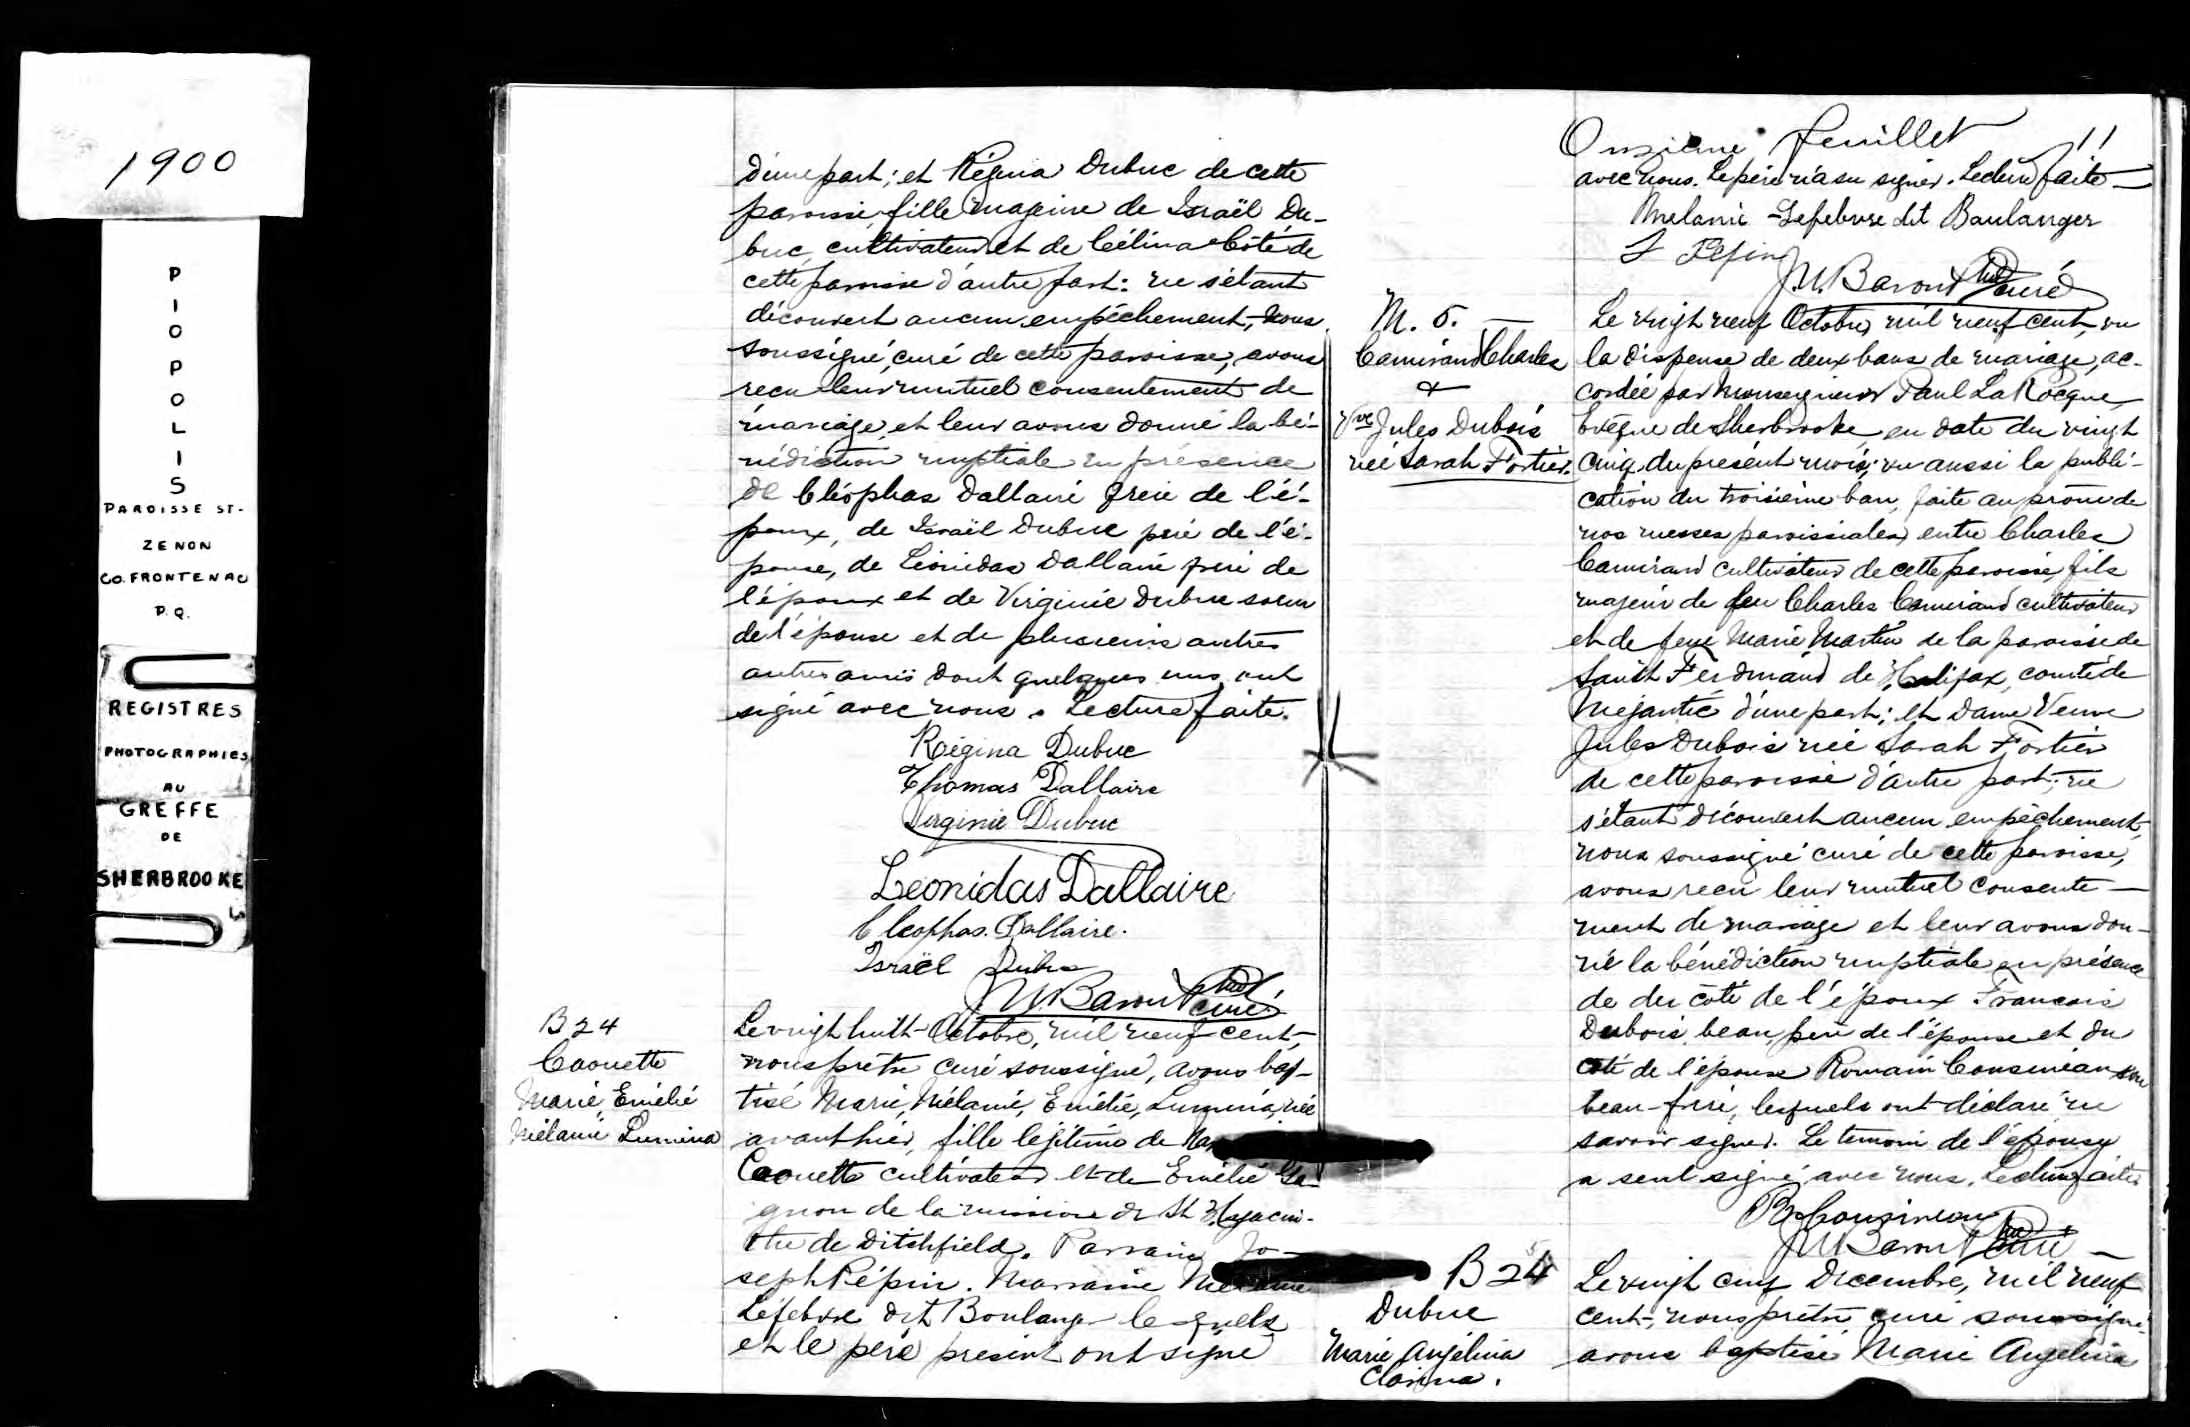 1900
P
I
O
P
O
L
I
S
PAROISSE ST-
ZENON
CO. FRONTENAC
P.Q.
REGISTRES
PHOTOGRAPHIES
AU
GREFFE
DE
SHERBROOKE
d'une part; et Régina Dubuc de cette
paroisse, fille majeure de Israël Du-
buc, cultivateur et de Célina Côté de
cette paroisse d'autre part: ne s'étant
découvert aucun empêchement, nous
soussigné, curé de cette paroisse, avons
reçu leur mutuel consentement de
mariage, et leur avons donné la bé-
nédiction nuptiale en présence
de Cléophas Dallaire frère de l'é-
poux, de Israël Dubuc père de l'é-
pouse, de Léonidas Dallaire frère de
l'époux et de Virginie Dubuc soeur
de l'épouse et de plusieurs autres
autres amis dont quelques uns ont
signé avec nous. Lecture faite.
Régina Dubuc
Thomas Dallaire
Virginie Dubuc
Léonidas Dallaire
Cleophas. Dallaire.
Israël Dubuc
J.N. Baront Ptre curé
B 24
Caouette
Marie, Emélie
Mélanie Lumina
Le vingt huit Octobre, mil neuf cent,
nous prêtre curé soussigné, avons bap-
tisé Marie, Mélanie, Emélie, Lumina, née
avant hier, fille légitime de
Caouette cultivateur et de Emélie Ga-
gnon de la mission de St Hyacin-
the de Ditchfield. Parrain Jo-
seph Pépin. Marraine Mélanie
Lefebvre dit Boulanger lesquels
et le père présent ont signé
Onzième feuillet 11
avec nous. Le père n'a su signer. Lecture faite
Melanie Lefebvre dit Boulanger
J Pepin
J.N. Baront Ptre curé
M. 5.
Camirand Charles
&
Vve Jules Dubois
née Sarah Fortier.
Le vingt neuf Octobre, mil neuf cent, vu
la dispense de deux bans de mariage, ac-
cordée par Monseigneur Paul LaRocque
Evêque de Sherbrooke en date du vingt
cinq du présent mois; vu aussi la publi-
cation du troisième ban, faite au prône de
nos messes paroissiales, entre Charles
Camirand cultivateur de cette paroisse, fils
majeur de feu Charles Camirand cultivateur
et de feue Marie Martin de la paroisse de
Saint Ferdinand de Halifax, comté de
Mégantic d'une part; et Dame Veuve
Jules Dubois née Sarah Fortier
de cette paroisse d'autre part: ne
s'étant découvert aucun empêchement,
nous soussigné curé de cette paroisse,
avons reçu leur mutuel consente-
ment de mariage et leur avons don-
né la bénédiction nuptiale en présence
de du côté de l'époux Francois
Dubois, beau, père de l'épouse et du
côté de l'épouse Romain Cousineau son
beau-frère, lesquels ont déclaré ne
savoir signer. Le temoin de l'épouse
a seul signé avec nous. Lecture faite
R. Cousineau
J.N. Baront Ptre curé
B 25
Dubuc
Marie Angélina
Clarina.
Le vingt cinq Decembre, mil neuf
cent, nous prêtre curé soussigné
avons baptisé Marie Angélina